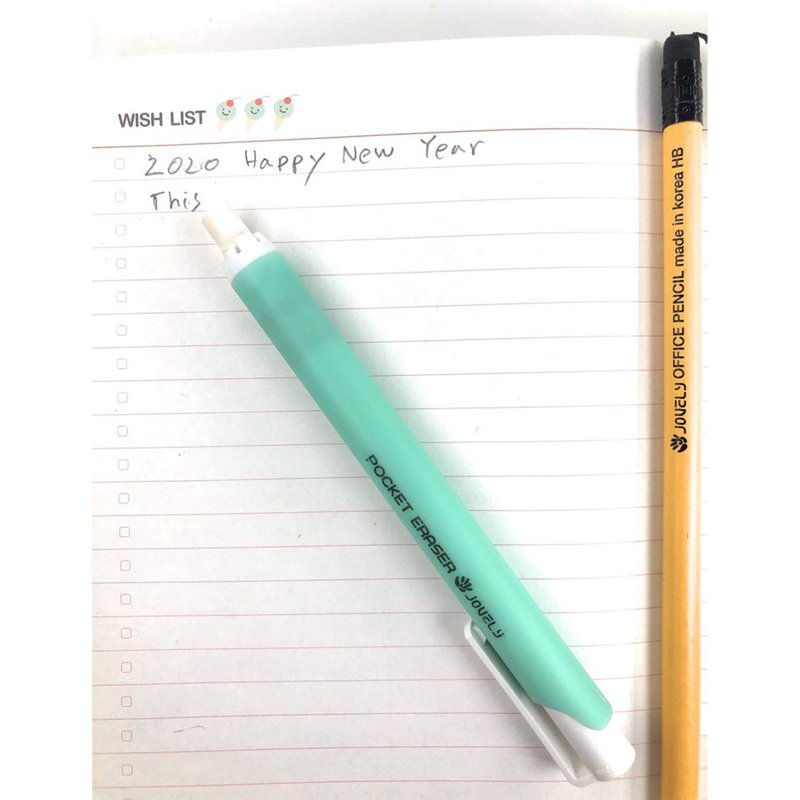 WISH LIST
2020 Happy New Year
This
POCKET ERASER JOVELY
JOVELY OFFICE PENCIL made in korea HB